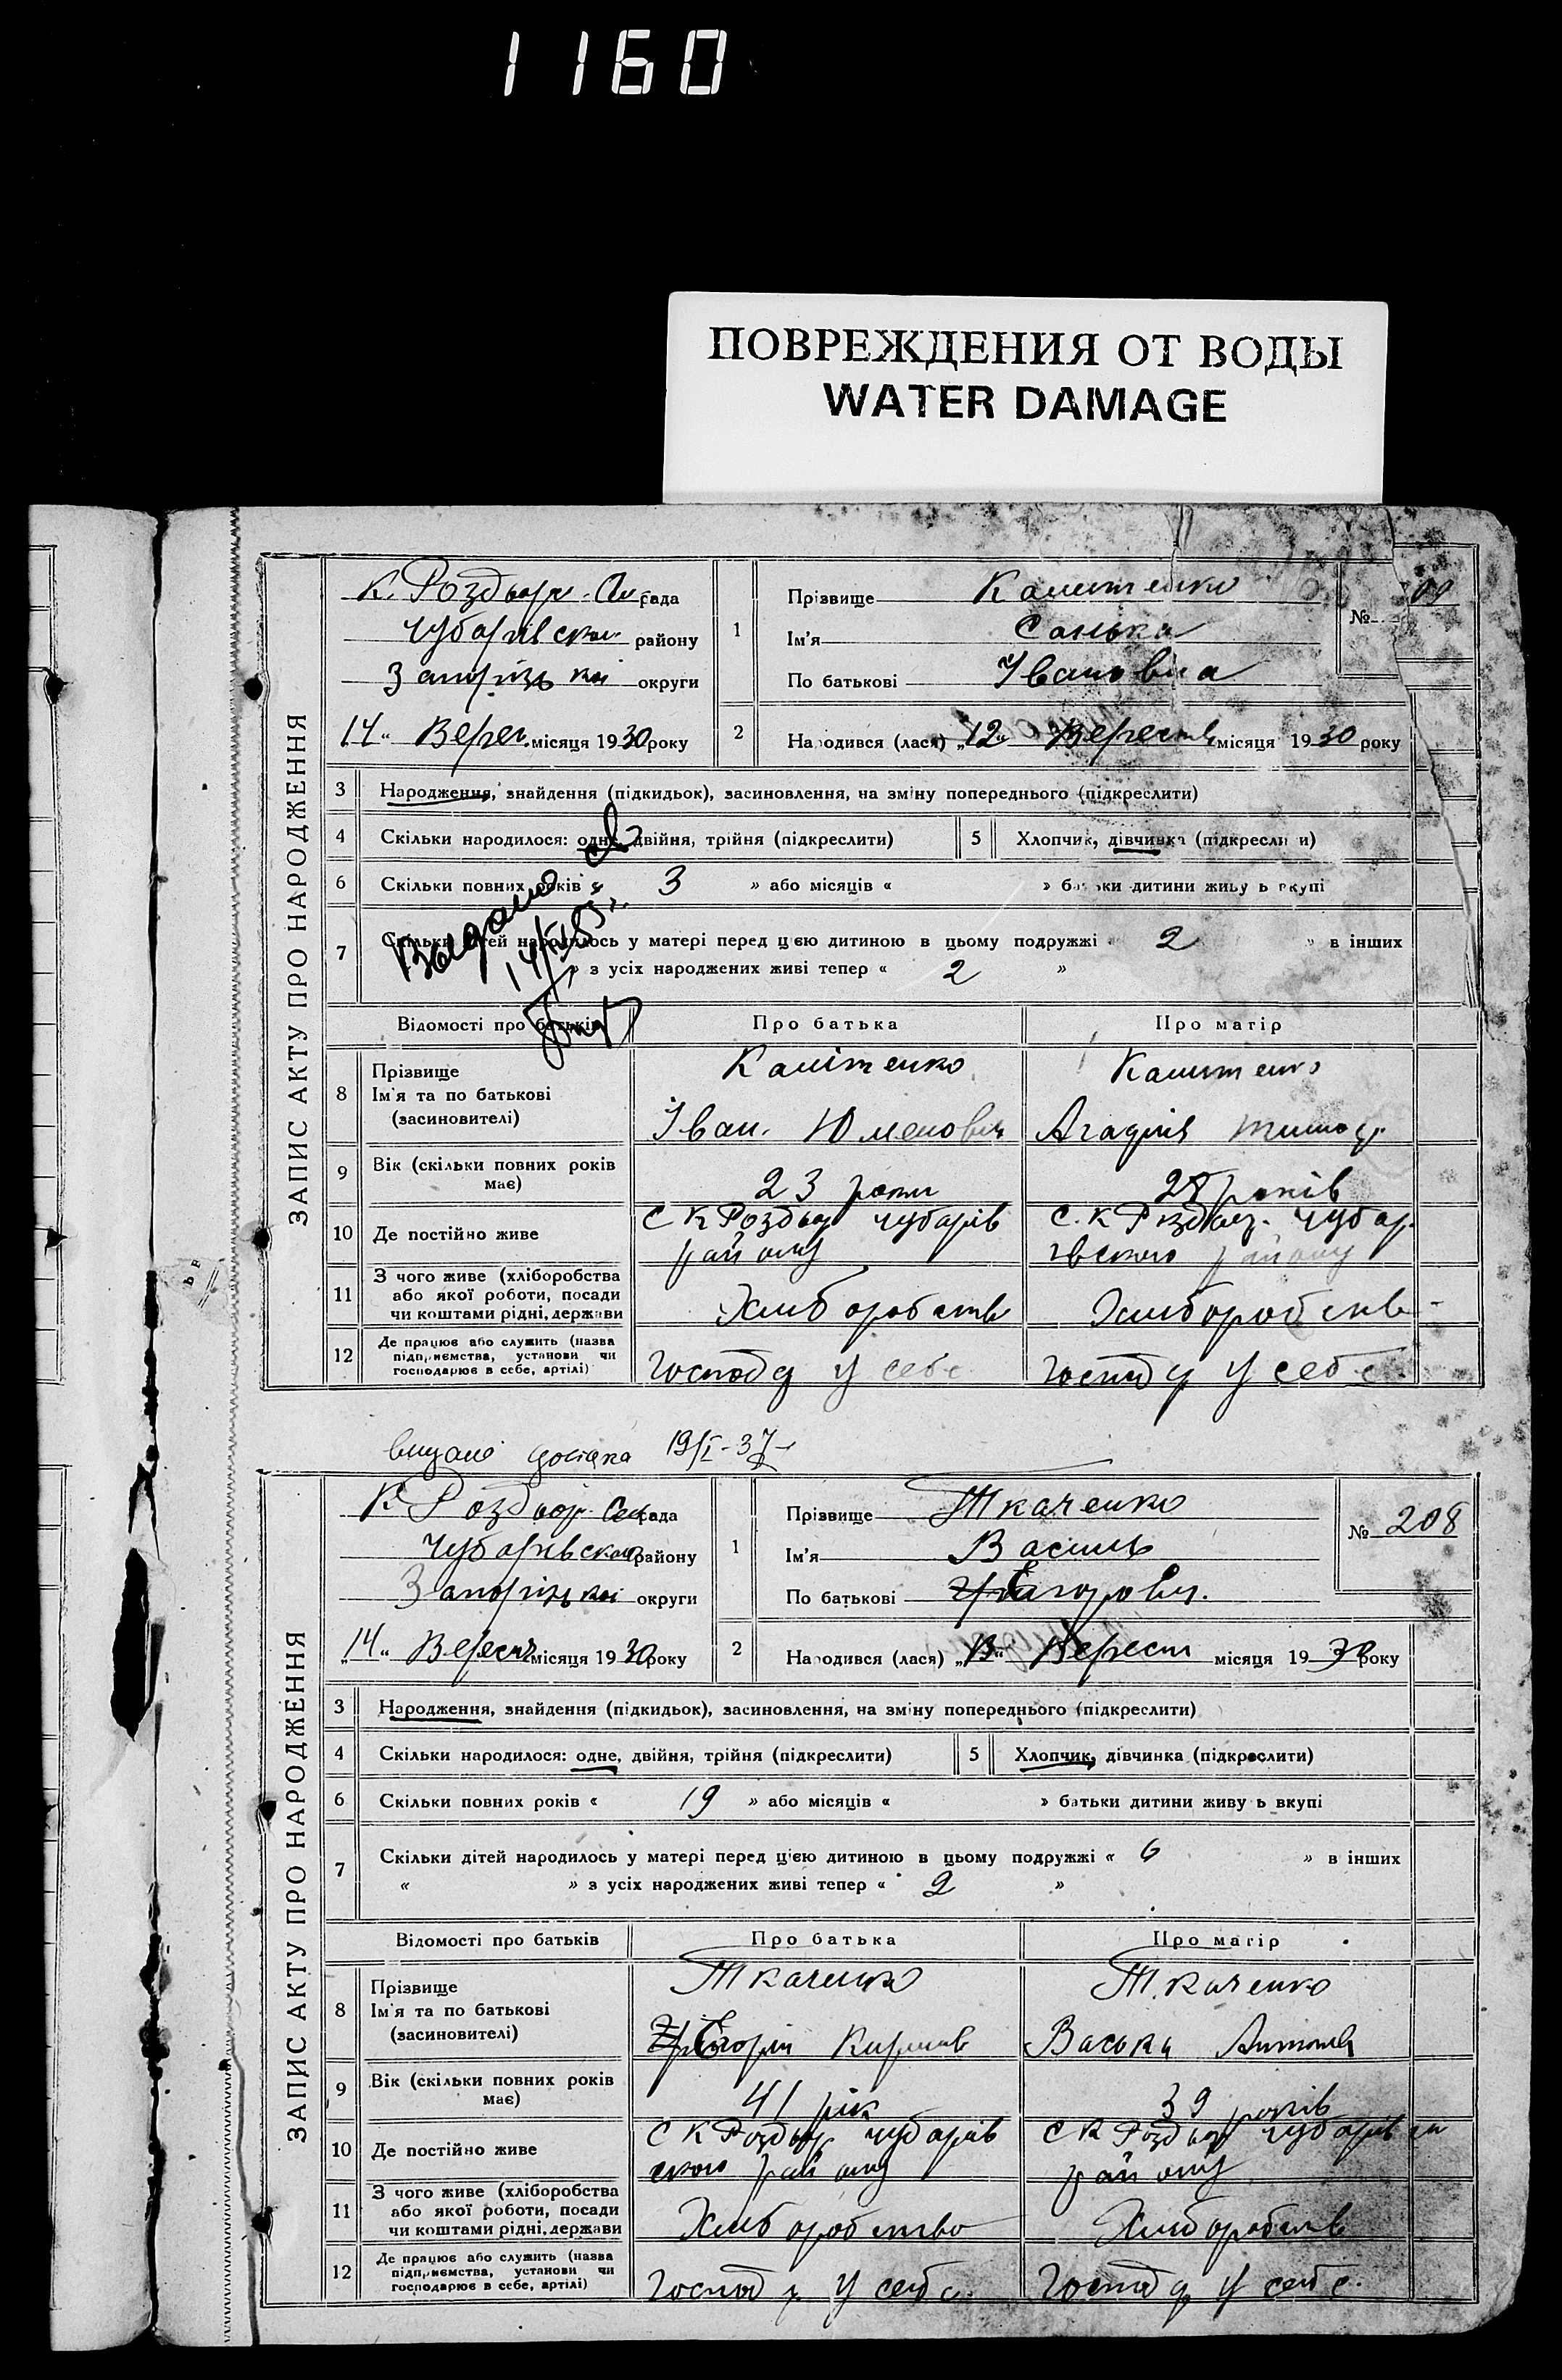 1160
ПОВРЕЖДЕНИЯ ОТ ВОДЫ
WATER DAMAGE
ЗАПИС АКТУ ПРО НАРОДЖЕННЯ
К. Роздор. рада
Чубарівськ району
Запорізької округи
"14" Верес. місяця 1930 року
1 Прізвище Калитенко
Ім'я Санька
По батькові Івановна
№ 09
2 Народився (лася) "12" Вересня місяця 1930 року
3 Народження, знайдення (підкидьок), засиновлення, на зміну попереднього (підкреслити)
4 Скільки народилося: одне, двійня, трійня (підкреслити) 5 Хлопчик, дівчинка (підкреслити)
6 Скільки повних років « 3 » або місяців « » батьки дитини живуть вкупі
7 Скільки дітей народилось у матері перед цією дитиною в цьому подружжі « 2 » в інших
» з усіх народжених живі тепер « 2 »
Выдано
Відомості про батьків Про батька Про матір
8 Прізвище
Ім'я та по батькові
(засиновителі)
Калітенко Калитенко
Іван
9 Вік (скільки повних років має) 23 роки 28 років
10 Де постійно живе
С К Роздор Чубарів
району
С. К Роздор. Чубар
івського району
11 З чого живе (хліборобства
або якої роботи, посади
чи коштами рідні, держави
Хліборобств Хліборобств
12 Де працює або служить (назва
підприємства, установи чи
господарює в себе, артілі)
Господ у себе Господ у себе
видано довідка 19/I-37
ЗАПИС АКТУ ПРО НАРОДЖЕННЯ
К Роздор Сел рада
Чубарівської району
Запорізької округи
"14" Вересня місяця 1930 року
1 Прізвище Ткаченко
Ім'я Василь
По батькові
№ 208
2 Народився (лася) "13" Вересня місяця 1930 року
3 Народження, знайдення (підкидьок), засиновлення, на зміну попереднього (підкреслити)
4 Скільки народилося: одне, двійня, трійня (підкреслити) 5 Хлопчик, дівчинка (підкреслити)
6 Скільки повних років « 19 » або місяців « » батьки дитини живуть вкупі
7 Скільки дітей народилось у матері перед цією дитиною в цьому подружжі « 6 » в інших
« » з усіх народжених живі тепер « 2 »
Відомості про батьків Про батька Про матір
8 Прізвище
Ім'я та по батькові
(засиновителі)
Ткаченко Ткаченко
Васька
9 Вік (скільки повних років має) 41 рік 39 років
10 Де постійно живе
С К Роздор Чубарів
ского району
С К Роздор Чубарівськ
району
11 З чого живе (хліборобства
або якої роботи, посади
чи коштами рідні, держави
Хліборобство Хліборобств
12 Де працює або служить (назва
підприємства, установи чи
господарює в себе, артілі)
Господ у себе Господ у себе.